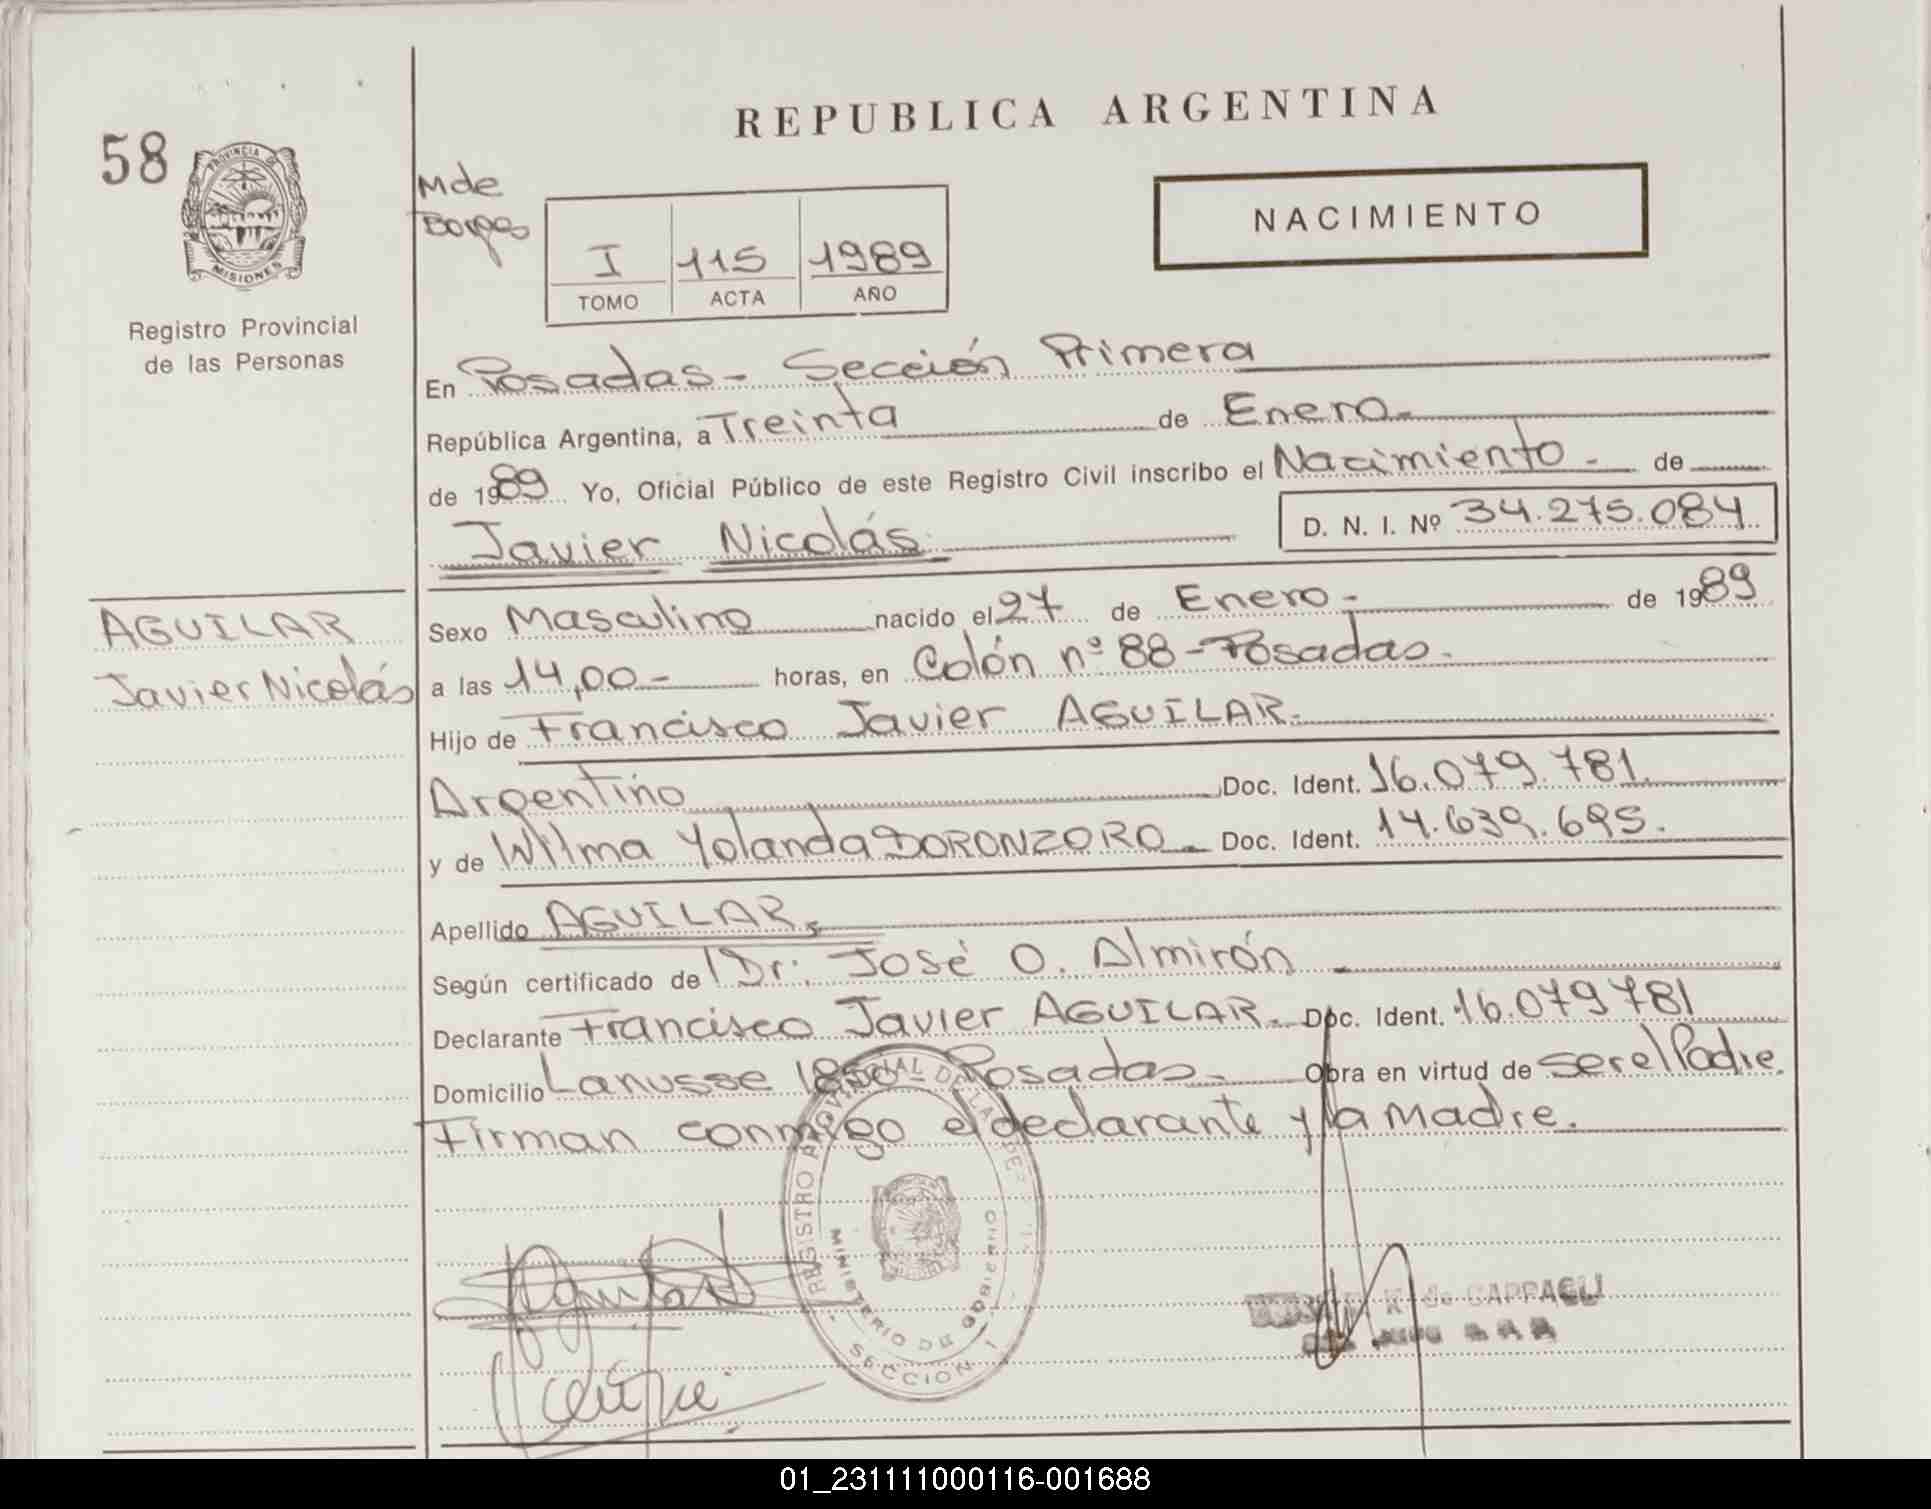 REPUBLICA ARGENTINA
58
PROVINCIA DE
MISIONES
Registro Provincial
de las Personas
M de
Borges
NACIMIENTO
I 115 1989
TOMO ACTA AÑO
En Posadas - Sección Primera
República Argentina, a Treinta de Enero.-
de 1989 Yo, Oficial Público de este Registro Civil inscribo el Nacimiento - de
Javier Nicolás. D. N. I. Nº 34.275.084
AGUILAR
Javier Nicolás
Sexo Masculino nacido el 27 de Enero - de 1989
a las 14,00 - horas, en Colón nº 88 - Posadas.
Hijo de Francisco Javier AGUILAR.
Argentino Doc. Ident. 16.079.781.
y de Wilma Yolanda DORONZORO - Doc. Ident. 14.639.695.
Apellido AGUILAR
Según certificado de Dr. José O. Almirón
Declarante Francisco Javier AGUILAR. Doc. Ident. 16.079781
Domicilio Lanusse 1850 - Posadas - Obra en virtud de ser el Padre.
Firman conmigo el declarante y la madre.
REGISTRO PROVINCIAL DE LAS PER
MINISTERIO DE GOBIERNO
SECCION 1
K de CAPPAGLI
01_231111000116-001688